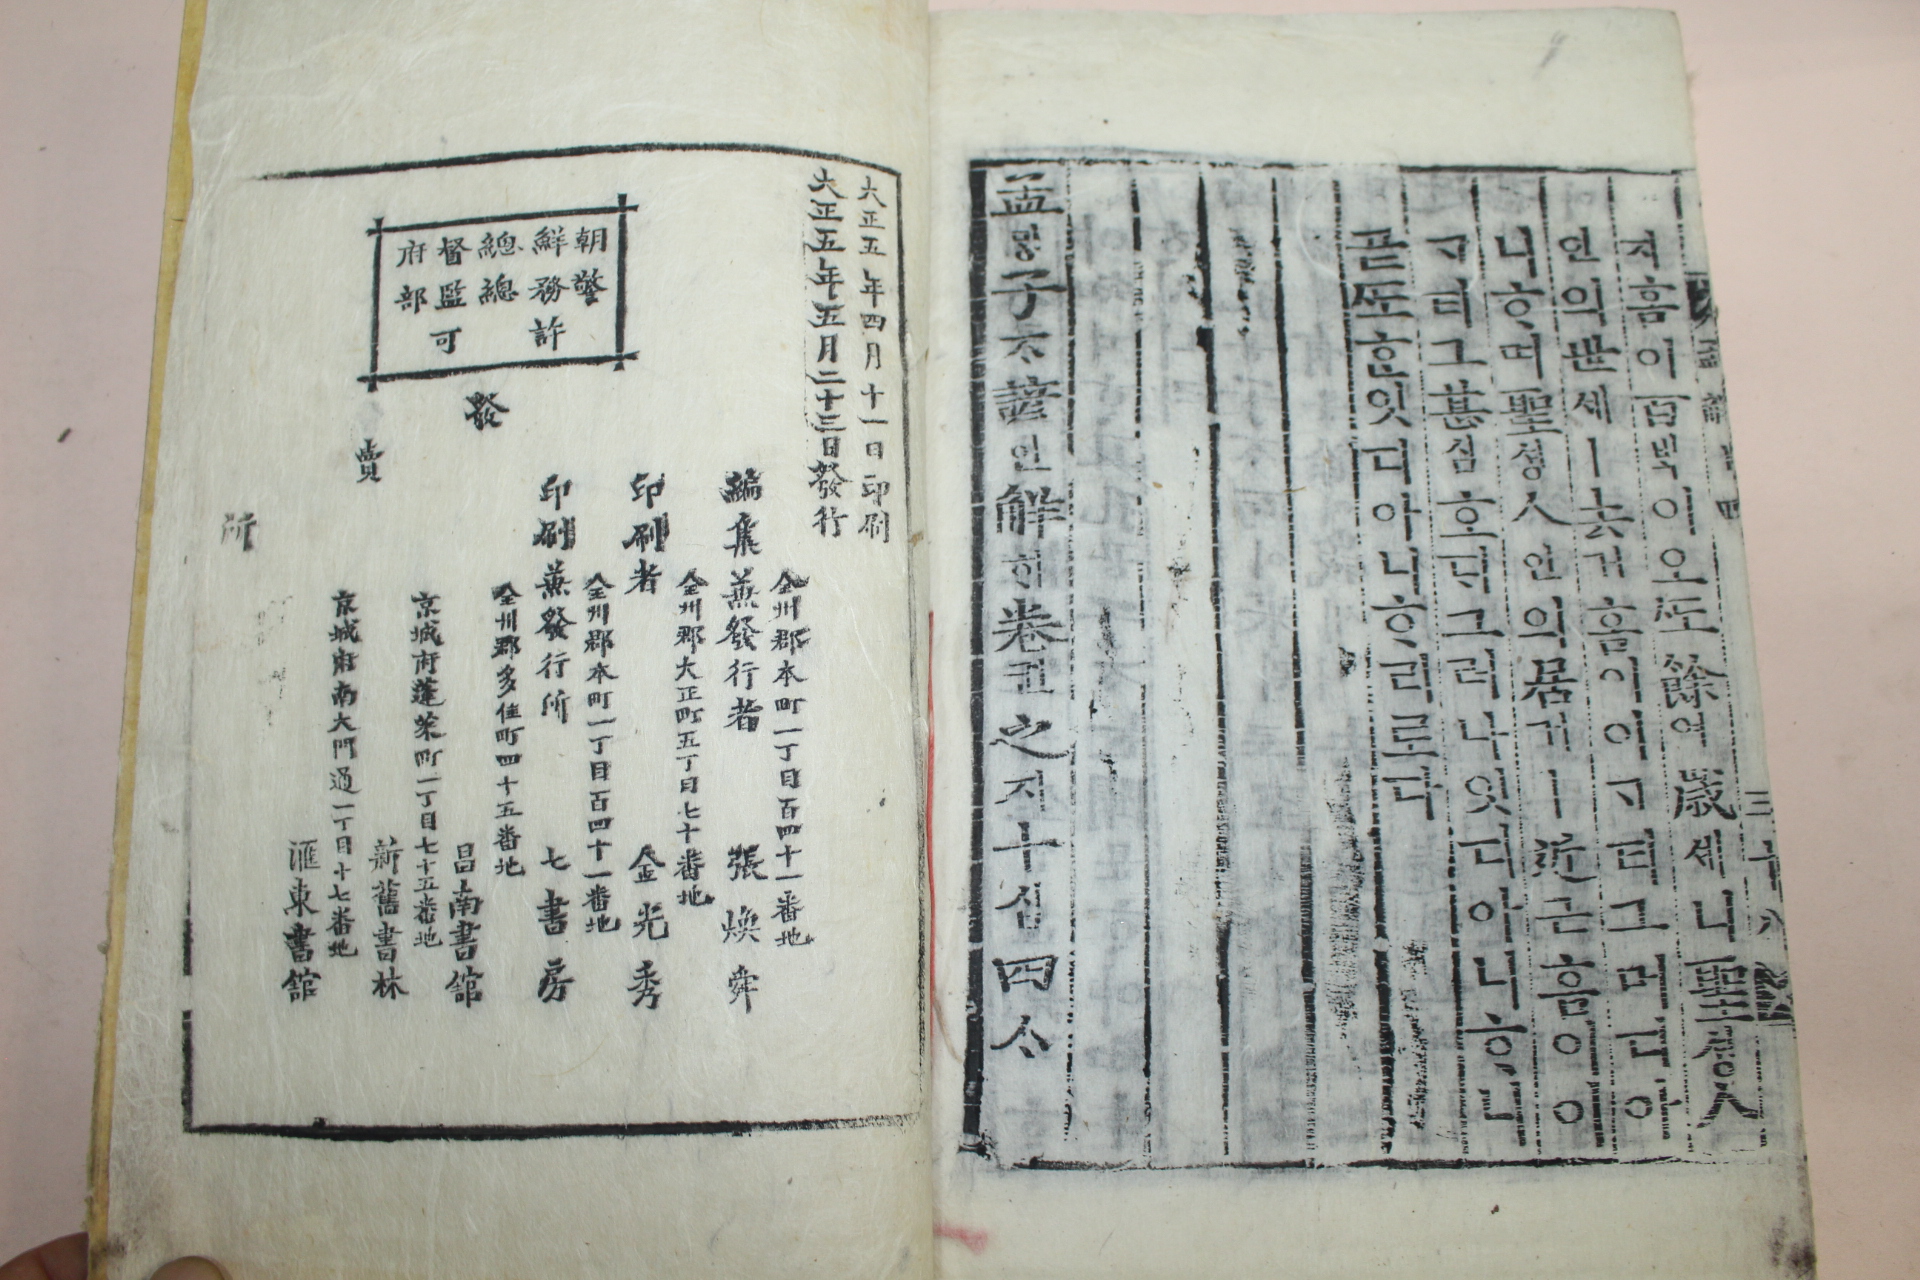 저흠이百ᄇᆡᆨ이오ᄯᅩ餘여歲세니聖셩人
인의世세ㅣ去거흠이이ᄀᆞ티그머디아
니ᄒᆞ며聖셩人인의居거ㅣ近근흠이이
ᄀᆞ티그甚심호ᄃᆡ그러나잇디아니ᄒᆞᆫ
곧ᄯᅩ흔잇디아니ᄒᆞ리로다
孟ᄆᆡᆼ子ᄌᆞ諺언解ᄒᆡ卷권之지十십四ᄉᆞ
三十八
大正五年四月十一日印刷
大正五年五月二十三日發行
朝鮮總督府
警務總監部
許可
全州郡本町一丁目百四十一番地
編集兼發行者 張煥舜
全州郡大正町五丁目七十番地
印刷者 金光秀
全州郡本町一丁目百四十一番地
印刷兼發行所 七書房
發賣所
全州郡多佳町四十五番地
昌南書舘
京城府蓬萊町一丁目七十五番地
新舊書林
京城府南大門通一丁目十七番地
滙東書舘